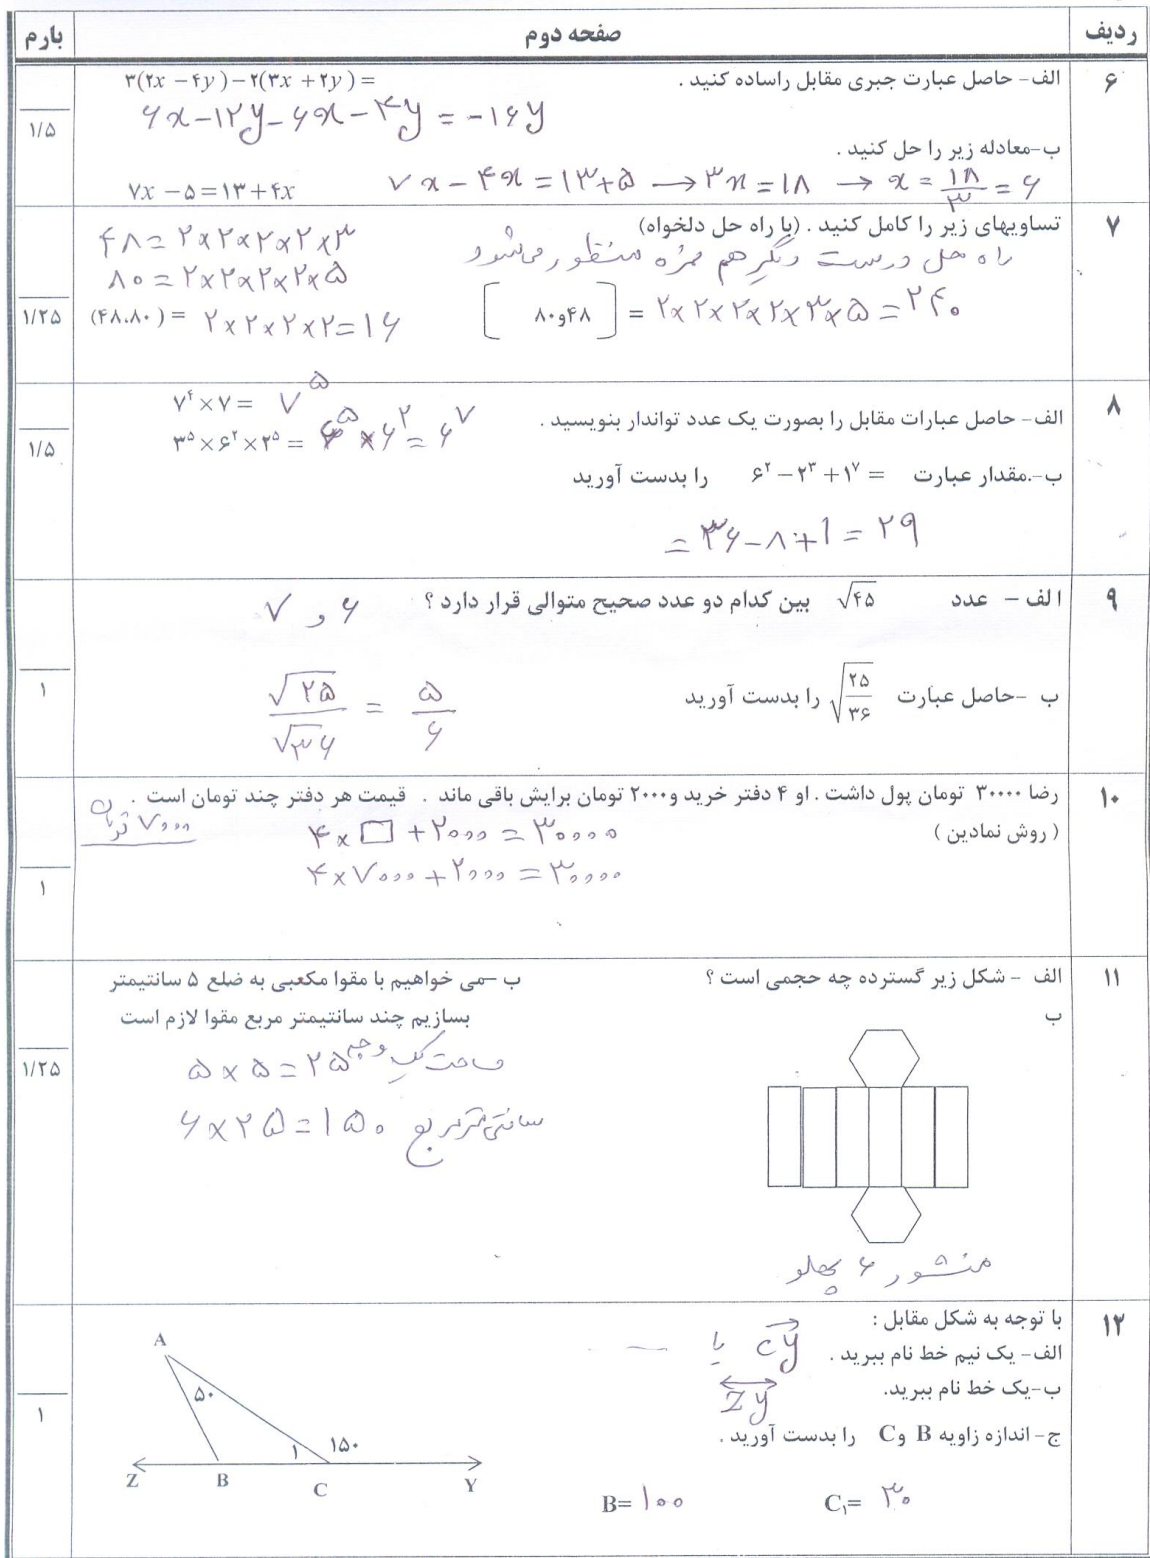 ردیف صفحه دوم بارم
۶ الف- حاصل عبارت جبری مقابل راساده کنید . ۳(۲x − ۴y) − ۲(۳x + ۲y) =
۶x − ۱۲y − ۶x − ۴y = −۱۶y
۱/۵
ب-معادله زیر را حل کنید .
۷x − ۵ = ۱۳ + ۴x ۷x − ۴x = ۱۳+۵ → ۳x = ۱۸ → x = ۱۸/۳ = ۶
۷ تساویهای زیر را کامل کنید . (با راه حل دلخواه) ۴۸ = ۲×۲×۲×۲×۳
راه حل درست دیگر هم نمره منظور می‌شود ۸۰ = ۲×۲×۲×۲×۵
[۴۸و۸۰] = ۲×۲×۲×۲×۳×۵ = ۲۴۰ (۴۸،۸۰) = ۲×۲×۲×۲ = ۱۶ ۱/۲۵
۸ ۷⁴ × ۷ = ۷⁵
الف- حاصل عبارات مقابل را بصورت یک عدد تواندار بنویسید . ۳⁵ × ۶² × ۲⁵ = ۶⁵ × ۶² = ۶⁷ ۱/۵
ب-.مقدار عبارت = ۶² − ۲³ + ۱⁷ را بدست آورید
= ۳۶ − ۸ + ۱ = ۲۹
۹ الف - عدد √۴۵ بین کدام دو عدد صحیح متوالی قرار دارد ؟ ۶ و ۷
ب -حاصل عبارت √(۲۵/۳۶) را بدست آورید √۲۵/√۳۶ = ۵/۶ ۱
۱۰ رضا ۳۰۰۰۰ تومان پول داشت . او ۴ دفتر خرید و۲۰۰۰ تومان برایش باقی ماند . قیمت هر دفتر چند تومان است .
( روش نمادین ) ۴ × □ + ۲۰۰۰ = ۳۰۰۰۰ ۷۰۰۰ تومان
۴ × ۷۰۰۰ + ۲۰۰۰ = ۳۰۰۰۰
۱
۱۱ الف - شکل زیر گسترده چه حجمی است ؟
ب
منشور ۶ پهلو
ب -می خواهیم با مقوا مکعبی به ضلع ۵ سانتیمتر
بسازیم چند سانتیمتر مربع مقوا لازم است
مساحت یک وجه ۵ × ۵ = ۲۵
۶ × ۲۵ = ۱۵۰ سانتی‌متر مربع
۱/۲۵
۱۲ با توجه به شکل مقابل :
الف- یک نیم خط نام ببرید . Cy یا
ب-یک خط نام ببرید. Zy
ج- اندازه زاویه B و C را بدست آورید .
B= ۱۰۰ C₁= ۳۰
A
۵۰
۱ ۱۵۰
Z B C Y
۱